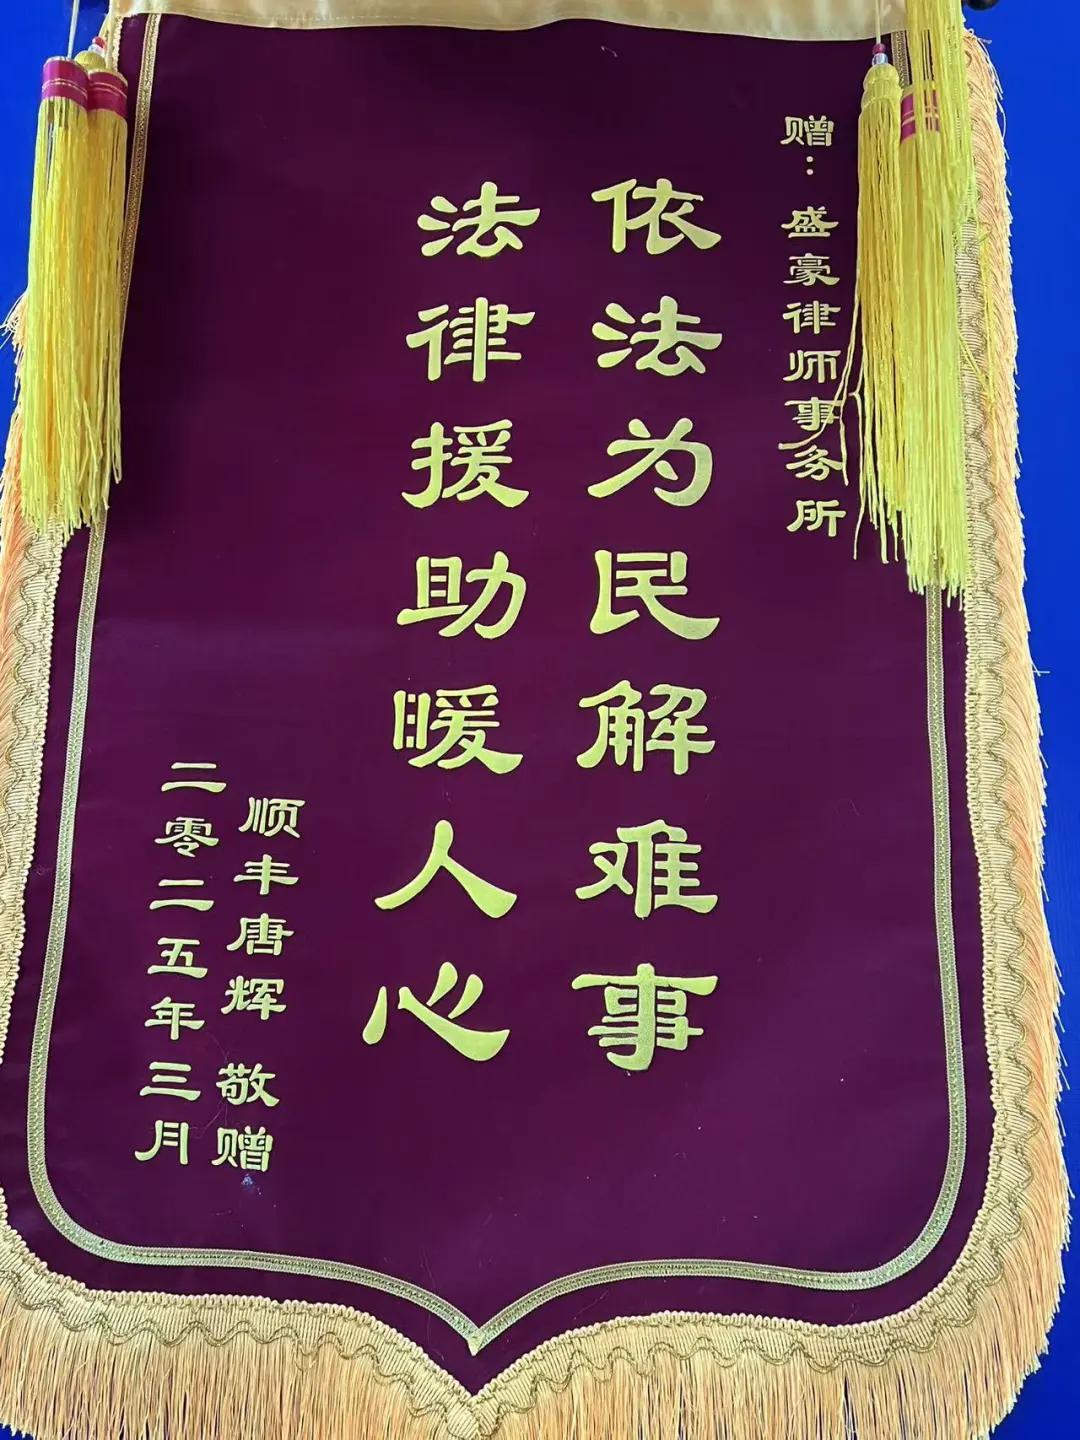 赠：盛豪律师事务所
依法为民解难事
法律援助暖人心
顺丰唐辉 敬赠
二零二五年三月